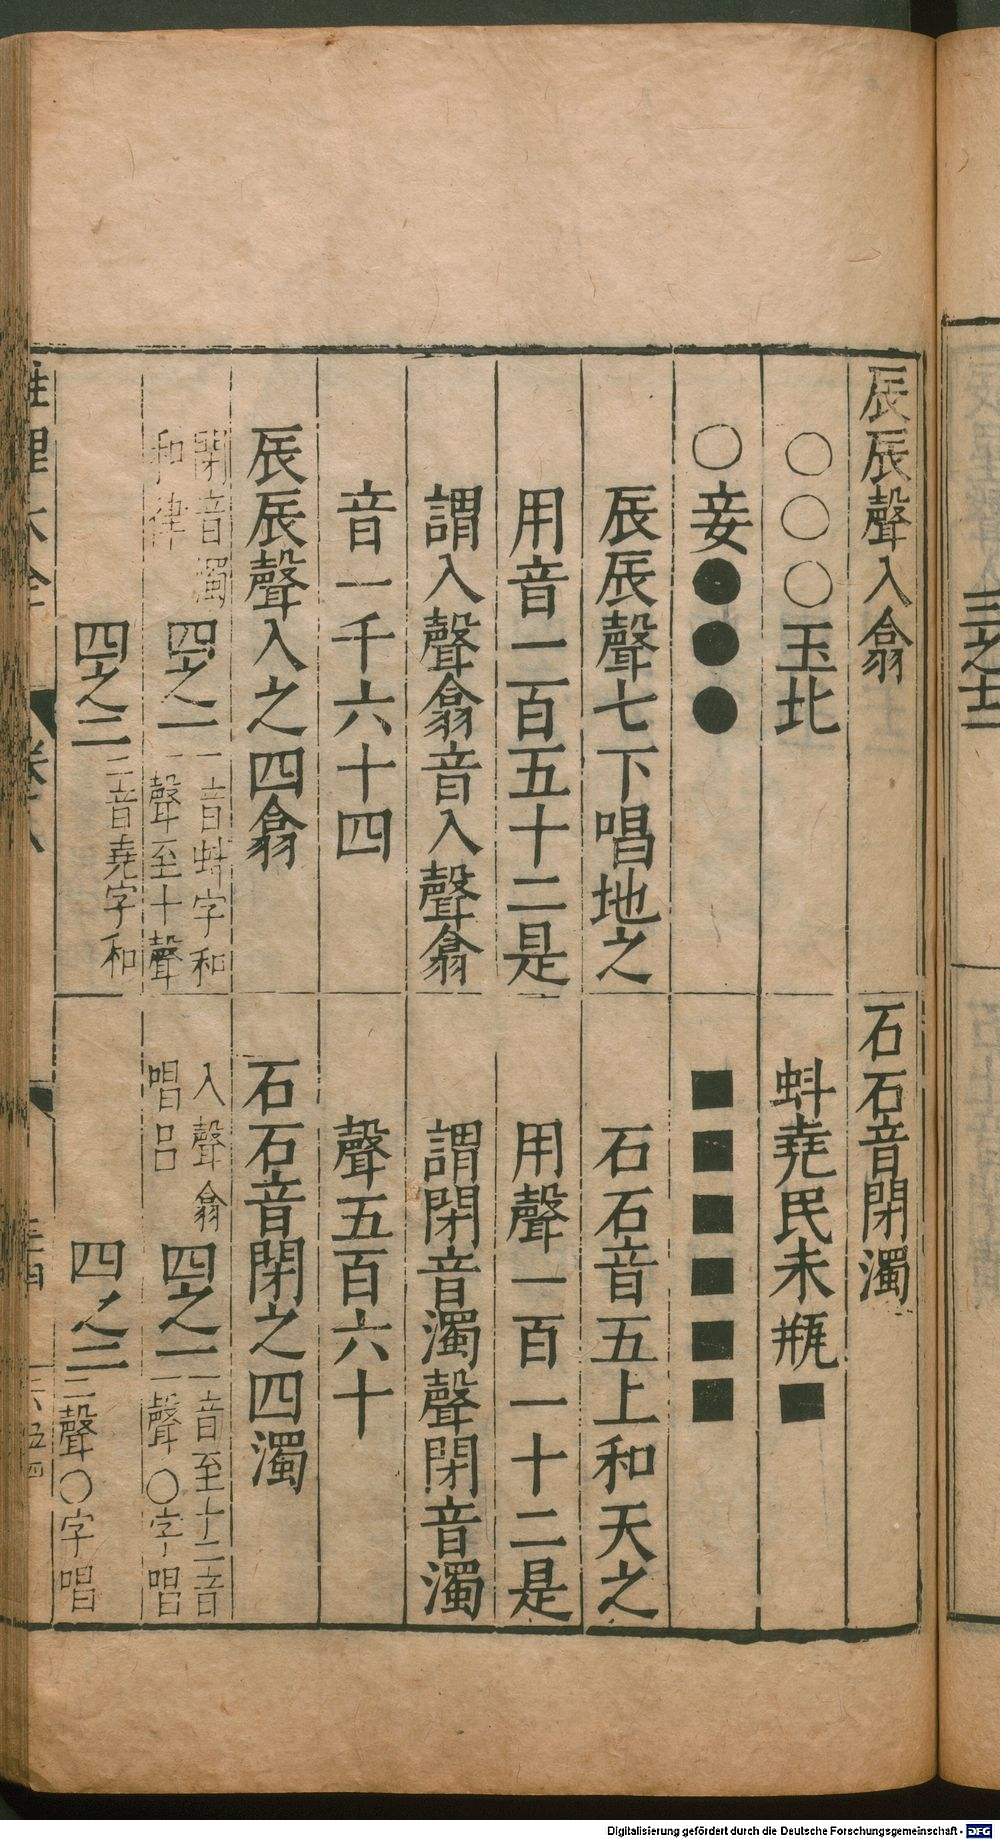 辰辰聲入翕
石石音閉濁
○○○玉北
蚌堯民未瓶■
○妾●●●
■■■■■■
辰辰聲七下唱地之
石石音五上和天之
用音一百五十二是
用聲一百一十二是
謂入聲翕音入聲翕
謂閉音濁聲閉音濁
音一千六十四
聲五百六十
辰辰聲入之四翕
石石音閉之四濁
閉音濁
和律
四之一
一音蚌字和
一聲至十聲
入聲翕
唱呂
四之一
一音至十二音
一聲○字唱
四之二
二音堯字和
四之二
二聲○字唱
性理大全
卷之八
三之十二
Digitalisierung gefördert durch die Deutsche Forschungsgemeinschaft - DFG